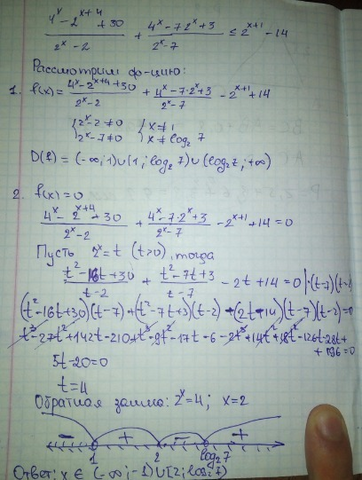 (4^x - 2^(x+4) + 30)/(2^x - 2) + (4^x - 7·2^x + 3)/(2^x - 7) ≤ 2^(x+1) - 14
Рассмотрим ф-цию:
1. f(x) = (4^x - 2^(x+4) + 30)/(2^x - 2) + (4^x - 7·2^x + 3)/(2^x - 7) - 2^(x+1) + 14
{2^x - 2 ≠ 0 {x ≠ 1
{2^x - 7 ≠ 0 {x ≠ log₂ 7
D(f) = (-∞; 1) ∪ (1; log₂ 7) ∪ (log₂ 7; +∞)
2. f(x) = 0
(4^x - 2^(x+4) + 30)/(2^x - 2) + (4^x - 7·2^x + 3)/(2^x - 7) - 2^(x+1) + 14 = 0
Пусть 2^x = t (t>0), тогда
(t² - 16t + 30)/(t - 2) + (t² - 7t + 3)/(t - 7) - 2t + 14 = 0 | · (t-7)(t-2)
(t² - 16t + 30)(t - 7) + (t² - 7t + 3)(t - 2) - (2t - 14)(t - 7)(t - 2) = 0
5t - 20 = 0
t = 4
Обратная замена: 2^x = 4; x = 2
- + - +
1 2 log₂ 7
Ответ: x ∈ (-∞; -1) ∪ [2; log₂ 7)